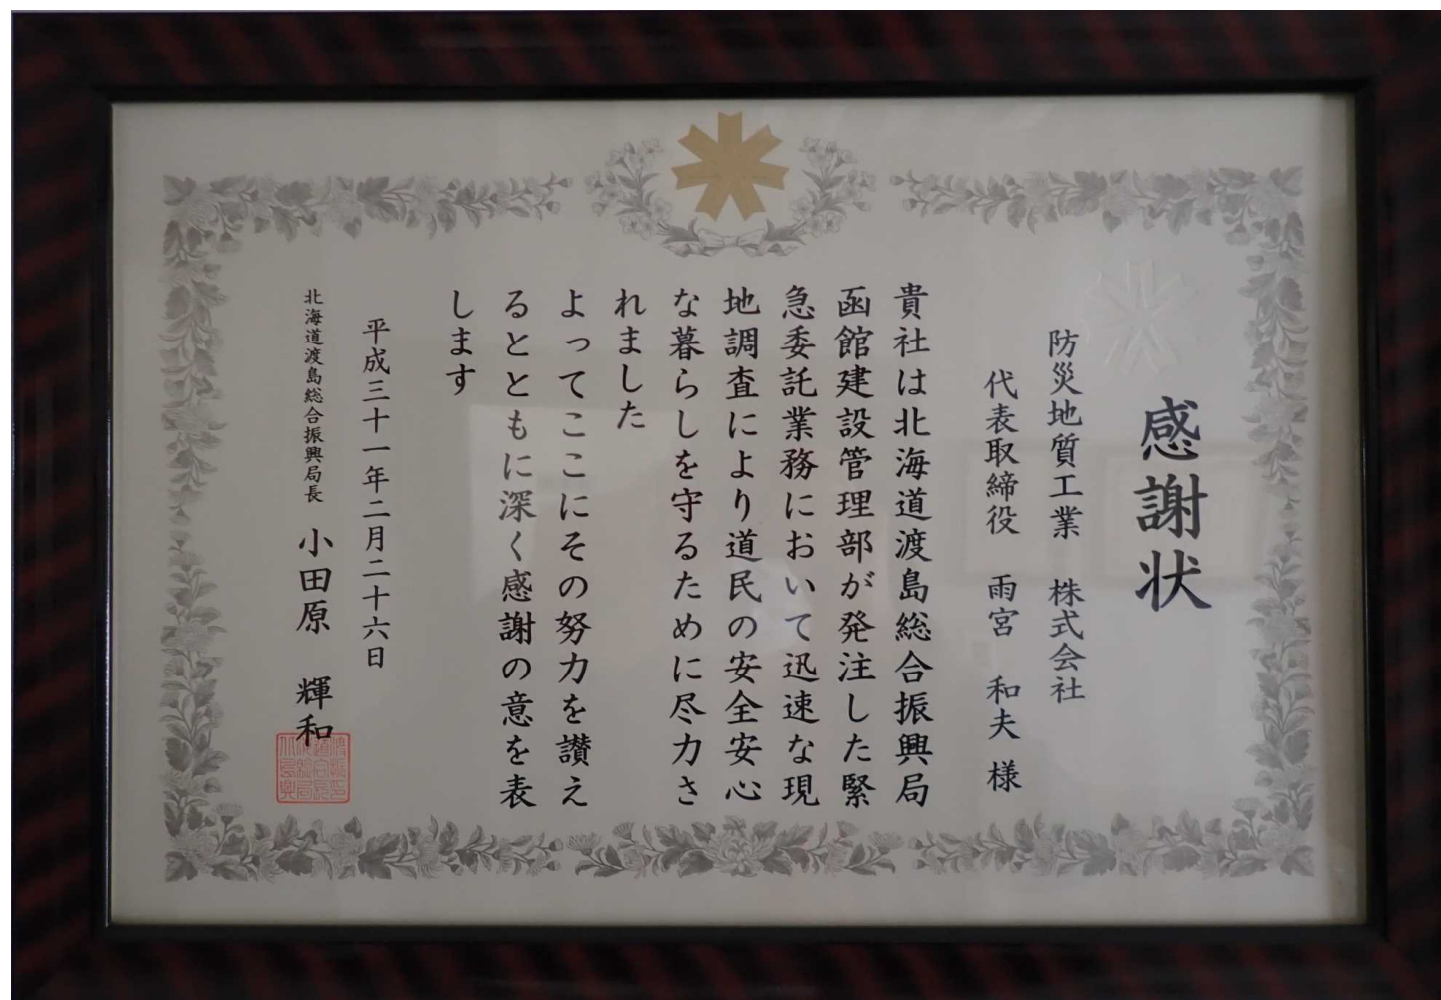 感謝状
防災地質工業 株式会社
代表取締役 雨宮 和夫 様
貴社は北海道渡島総合振興局
函館建設管理部が発注した緊
急委託業務において迅速な現
地調査により道民の安全安心
な暮らしを守るために尽力さ
れました
よってここにその努力を讃え
るとともに深く感謝の意を表
します
平成三十一年二月二十六日
北海道渡島総合振興局長 小田原 輝和